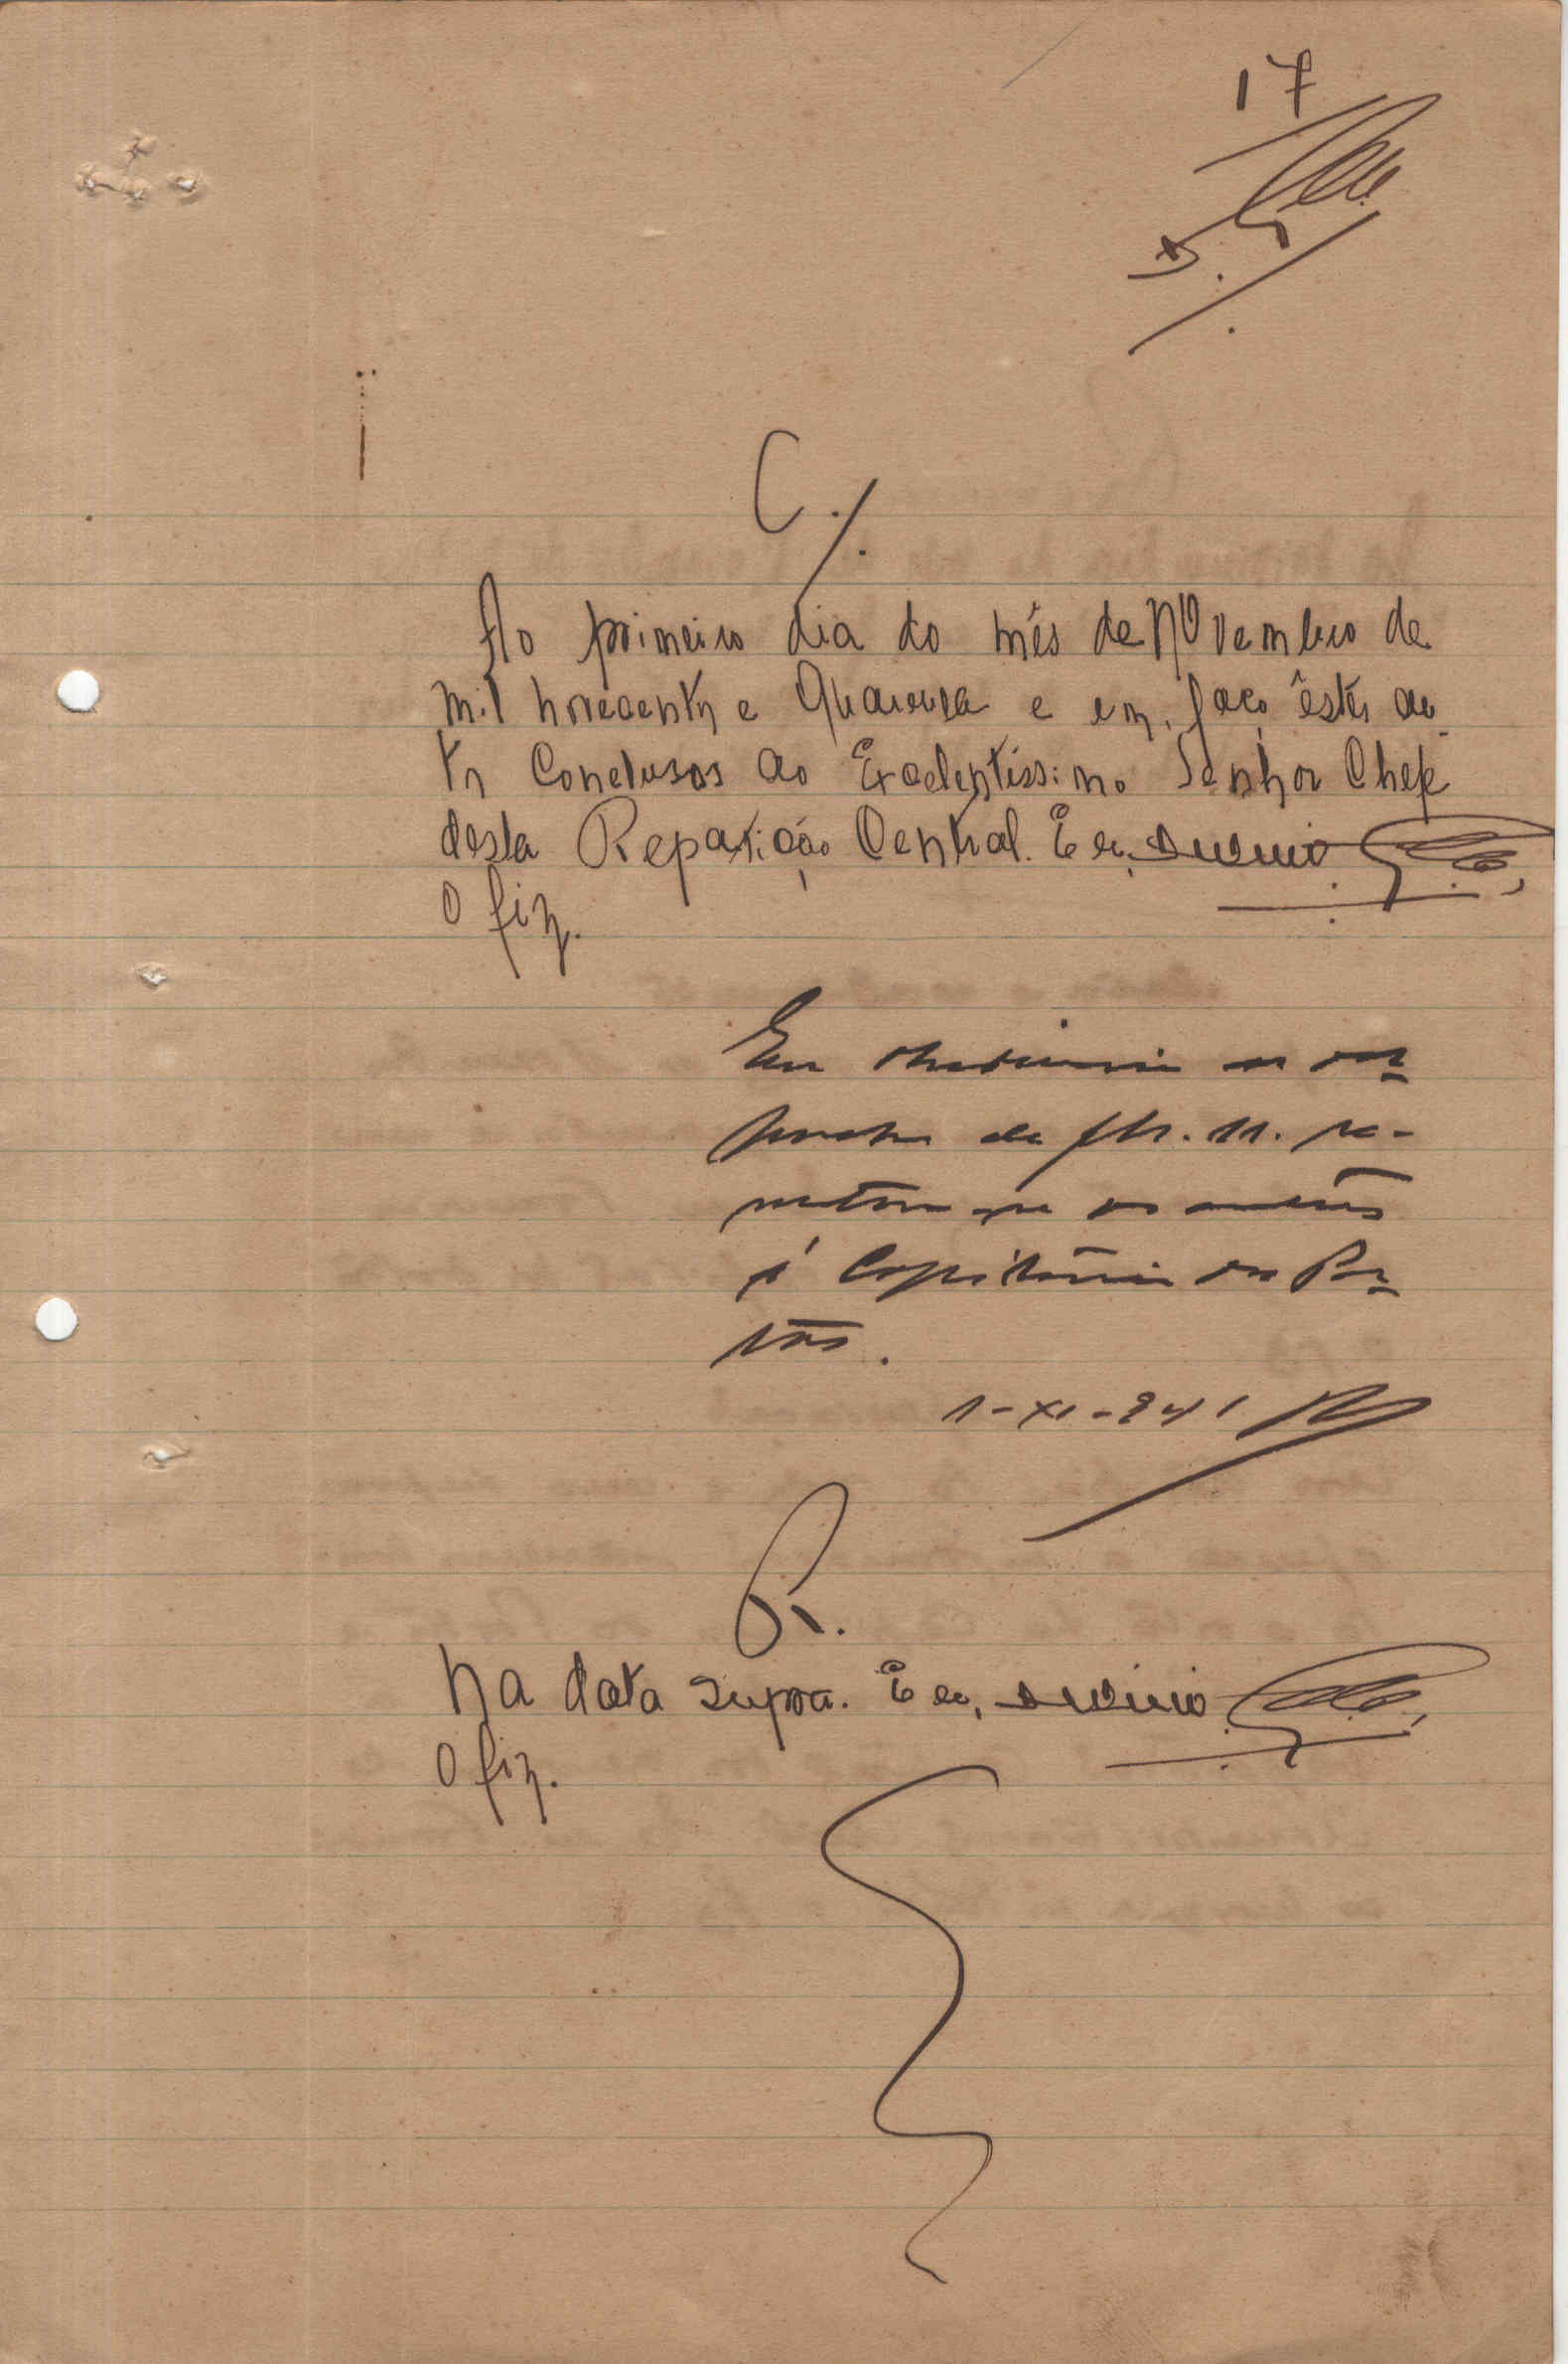 17
C./.
Ao primeiro dia do mês de Novembro de
mil novecentos e quarenta e um, faço êstes au-
tos conclusos ao Excelentíssimo Senhor Chefe
desta Repartição Central. E eu,
o fiz.
Em obediencia ao des-
pacho de fls. 11. re-
metam-se os autos
á Capitania dos Por-
tos.
1-XI-941
R.
Na data supra. E eu,
o fiz.